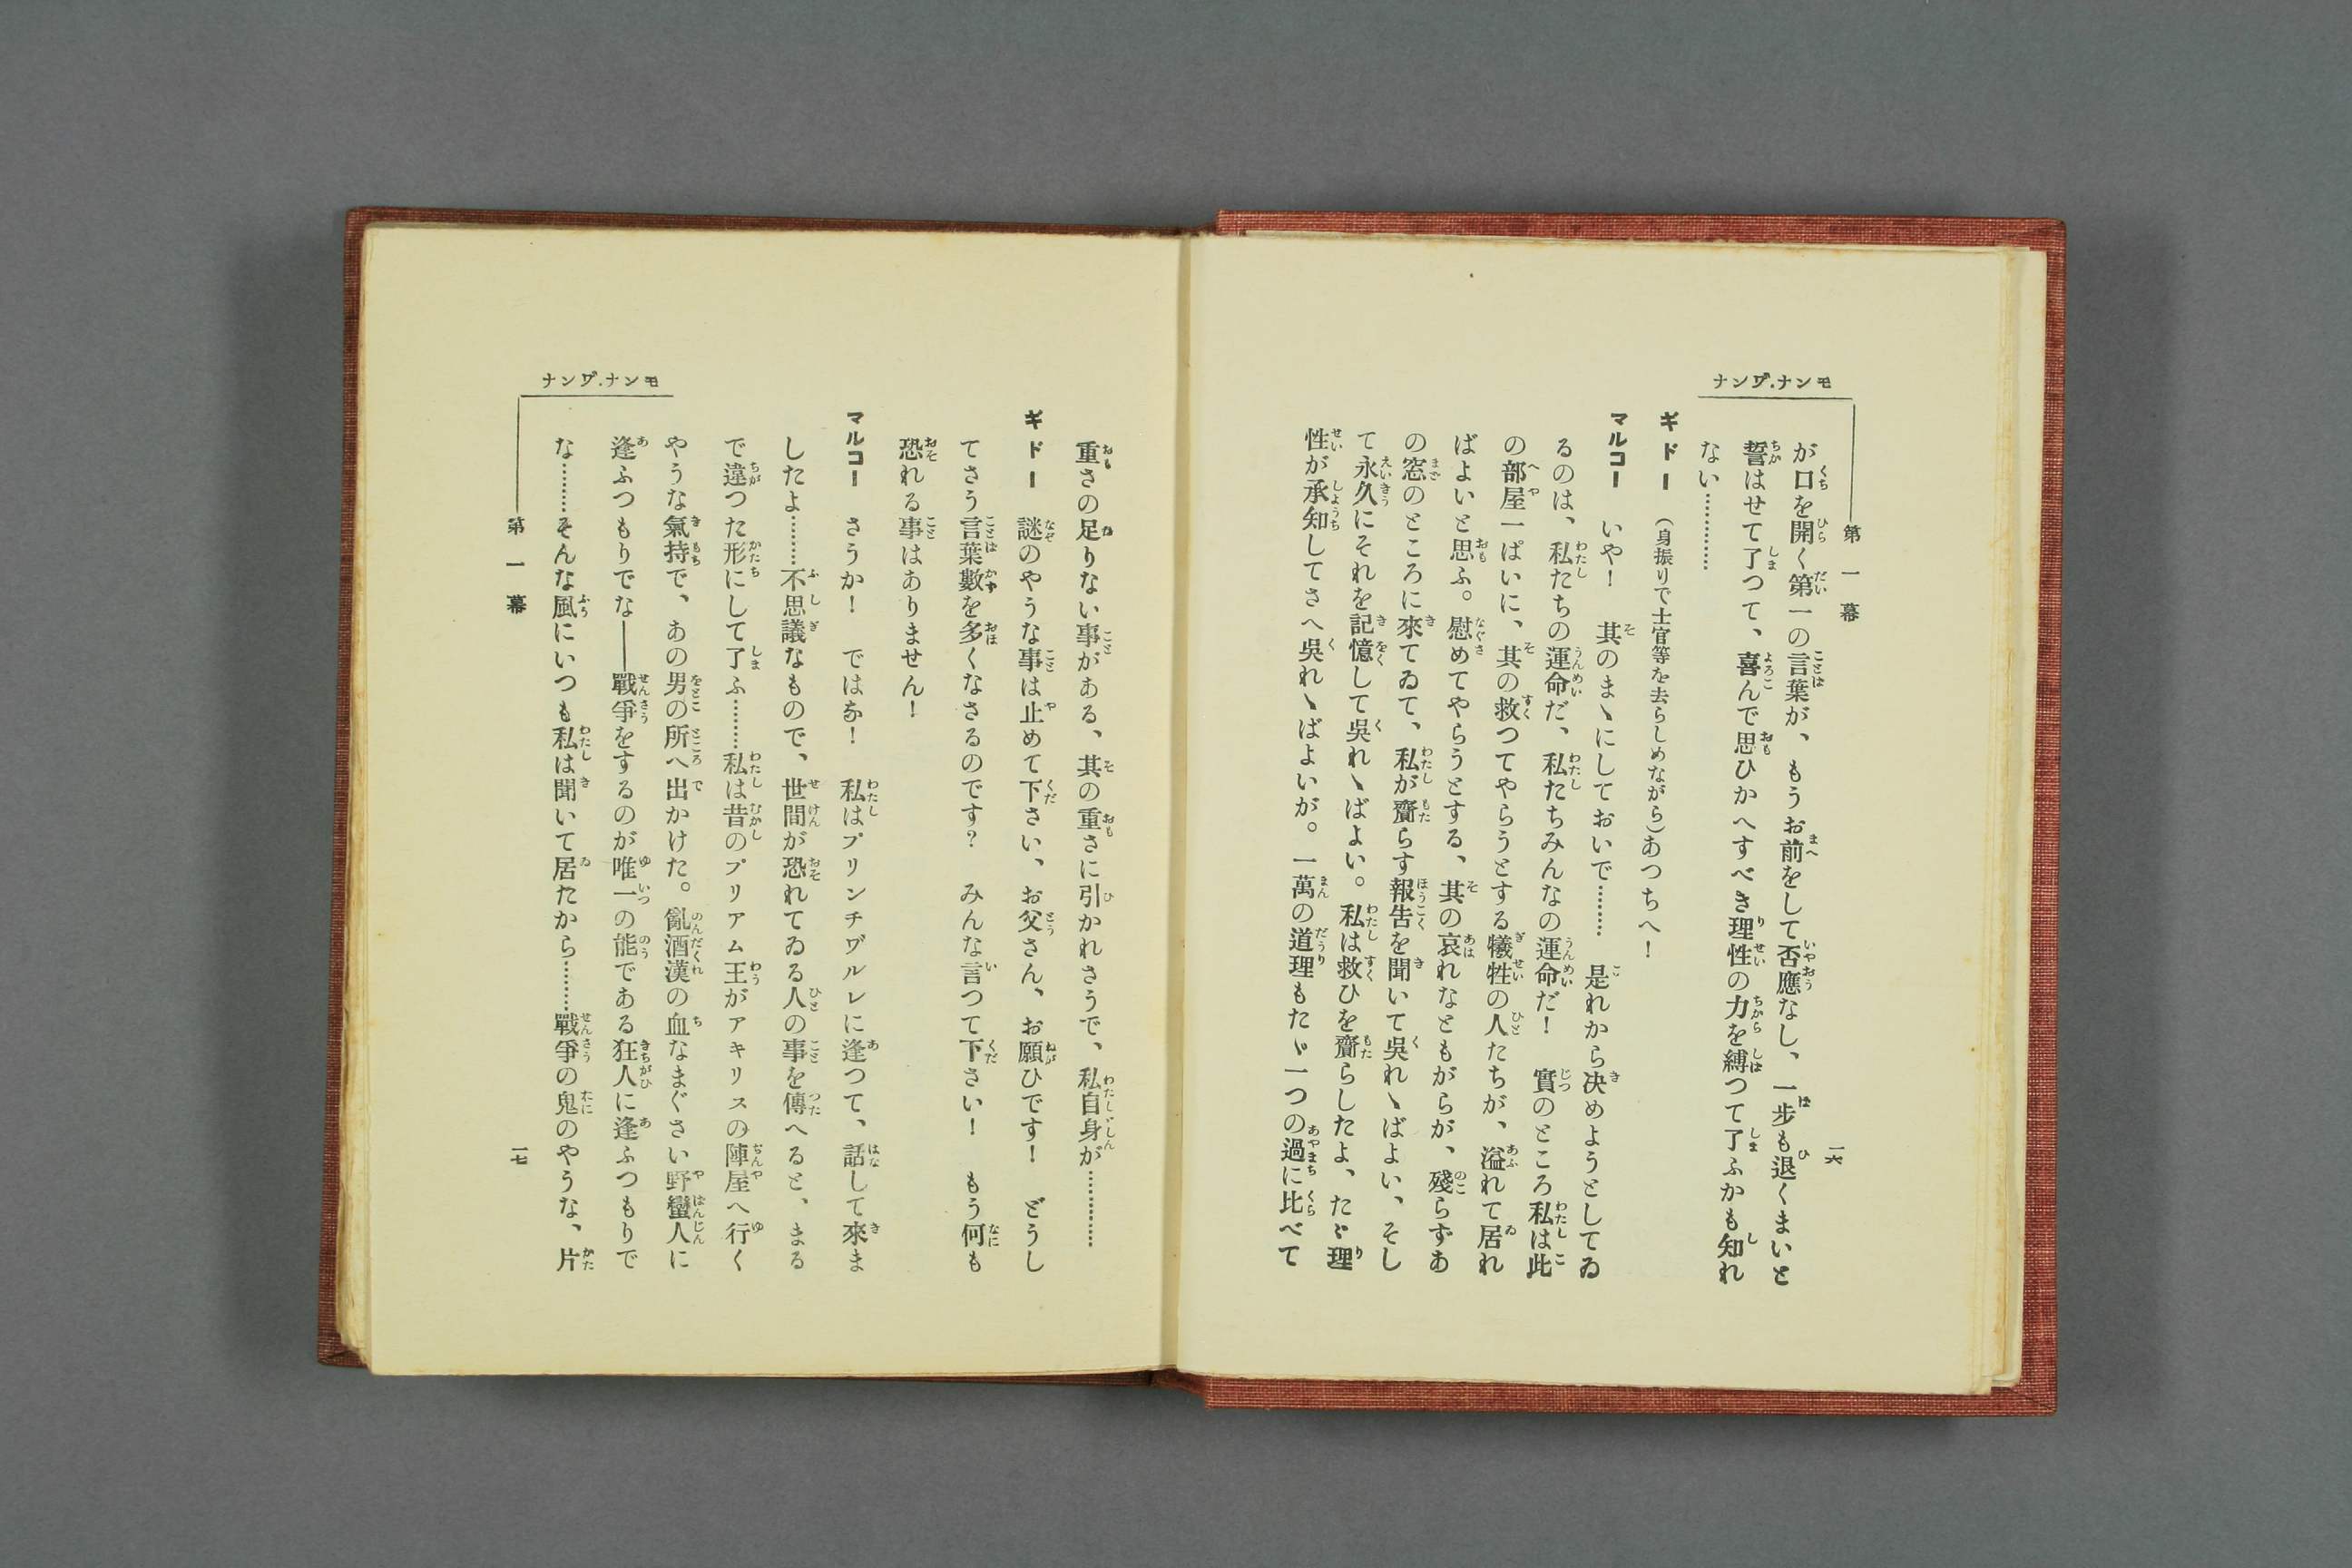 モンナ.ヷンナ
第一幕
一六
が口を開く第一の言葉が、もうお前をして否應なし、一歩も退くまいと
誓はせて了つて、喜んで思ひかへすべき理性の力を縛つて了ふかも知れ
ない…………
ギドー （身振りで士官等を去らしめながら）あつちへ！
マルコー いや！　其のまゝにしておいで……… 是れから決めようとしてゐ
るのは、私たちの運命だ、私たちみんなの運命だ！　實のところ私は此
の部屋一ぱいに、其の救つてやらうとする犧牲の人たちが、溢れて居れ
ばよいと思ふ。慰めてやらうとする、其の哀れなともがらが、殘らずあ
の窓のところに來てゐて、私が齎らす報告を聞いて呉れゝばよい、そし
て永久にそれを記憶して呉れゝばよい。私は救ひを齎らしたよ、たゞ理
性が承知してさへ呉れゝばよいが。一萬の道理もたゞ一つの過に比べて
モンナ.ヷンナ
重さの足りない事がある、其の重さに引かれさうで、私自身が…………
ギドー 謎のやうな事は止めて下さい、お父さん、お願ひです！　どうし
てさう言葉數を多くなさるのです？　みんな言つて下さい！　もう何も
恐れる事はありません！
マルコー さうか！　ではな！　私はプリンチヷルレに逢つて、話して來ま
したよ………不思議なもので、世間が恐れてゐる人の事を傳へると、まる
で違つた形にして了ふ………私は昔のプリアム王がアキリスの陣屋へ行く
やうな氣持で、あの男の所へ出かけた。亂酒漢の血なまぐさい野蠻人に
逢ふつもりでな――戰爭をするのが唯一の能である狂人に逢ふつもりで
な………そんな風にいつも私は聞いて居たから………戰爭の鬼のやうな、片
第一幕
一七